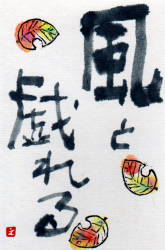 風と
戯れる